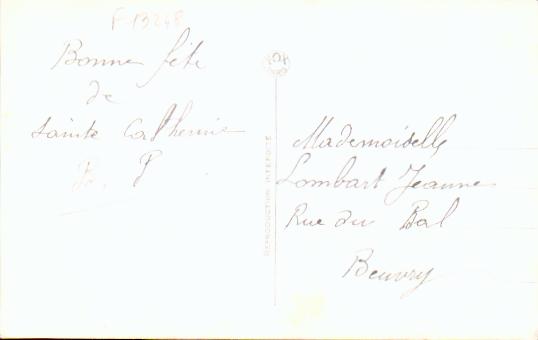 F-13248
Bonne fête
de
Sainte Catherine
B. P
REPRODUCTION INTERDITE
Mademoiselle
Lombart Jeanne
Rue du Bal
Beuvry